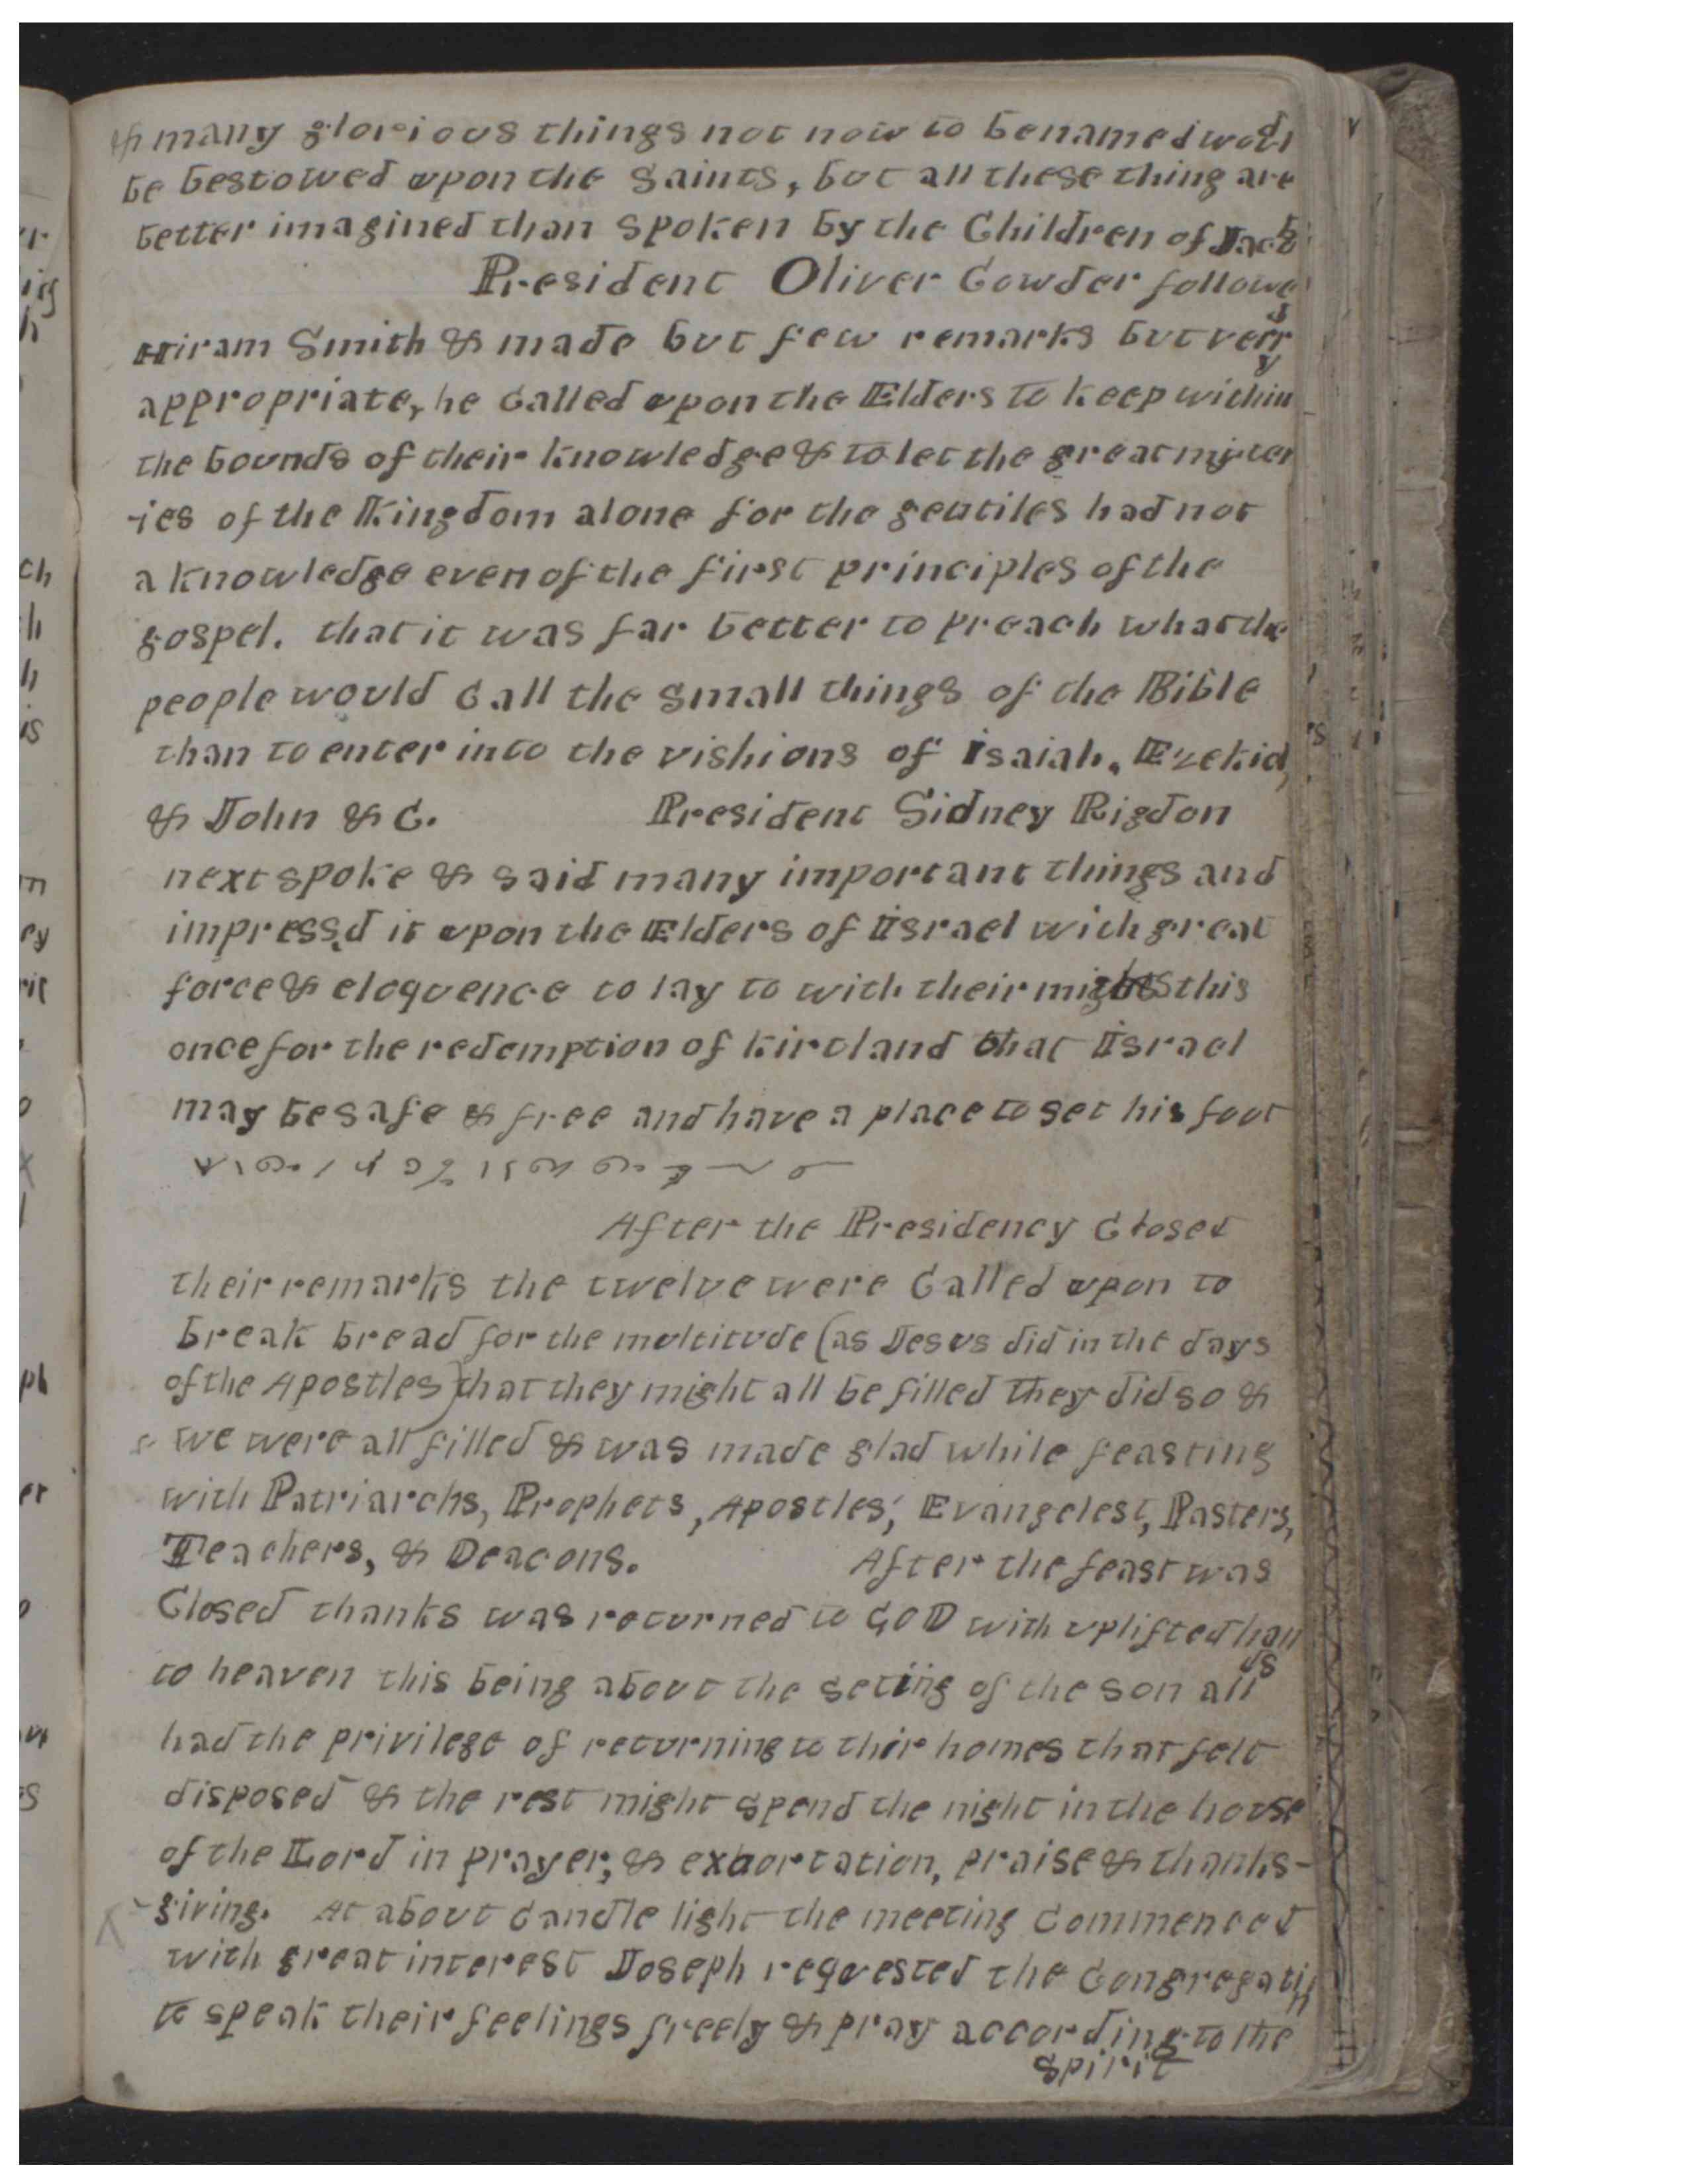 & many glorious things not now to be named would
be bestowed upon the Saints, but all these thing are
better imagined than spoken by the Children of Jacob
President Oliver Cowder followed
Hiram Smith & made but few remarks but very
appropriate, he called upon the Elders to keep within
the bounds of their knowledge & to let the great mister
-ies of the Kingdom alone for the gentiles had not
a knowledge even of the first principles of the
gospel. that it was far better to preach what the
people would Call the small things of the Bible
than to enter into the vishions of isaiah, Ezekiel,
& John & C. President Sidney Rigdon
next spoke & said many important things and
impressd it upon the Elders of Israel with great
force & eloquence to lay to with their mights this
once for the redemption of kirtland that Israel
may be safe & free and have a place to set his foot
After the Presidency Closed
their remarks the twelve were Called upon to
break bread for the multitude (as Jesus did in the days
of the Apostles) that they might all be filled they did so &
we were all filled & was made glad while feasting
with Patriarchs, Prophets, Apostles, Evangelest, Pasters,
Teachers, & Deacons. After the feast was
Closed thanks was returned to GOD with uplifted hands
to heaven this being about the seting of the son all
had the privilege of returning to thir homes that felt
disposed & the rest might spend the night in the house
of the Lord in prayer, & exhortation, praise & thanks-
-giving. At about Candle light the meeting Commenced
with great interest Joseph requested the Congregatin
to speak their feelings freely & pray according to the
spirit